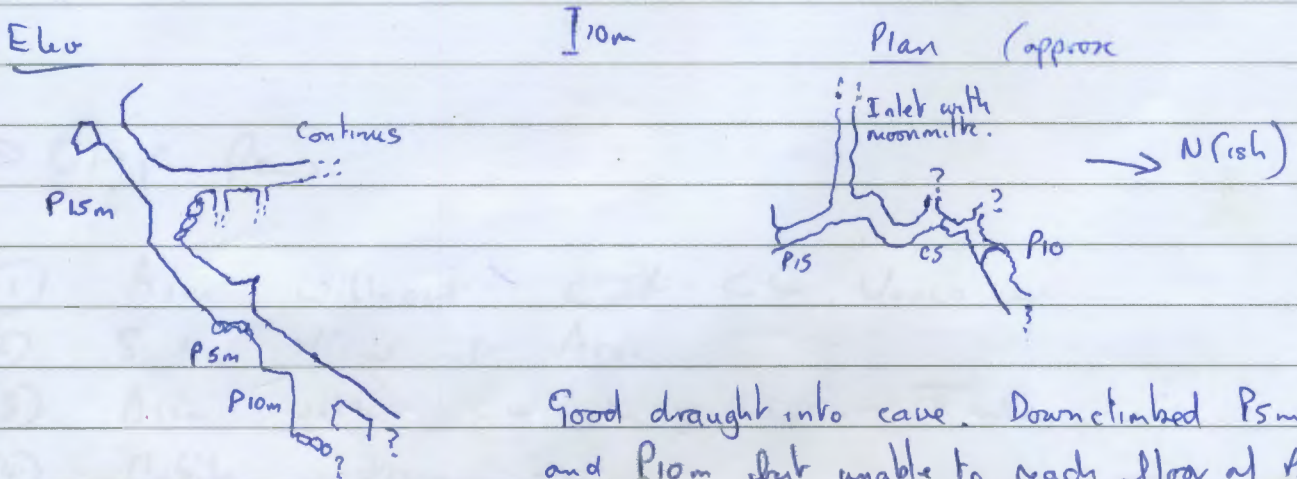 Elev
10m
Plan (approx
Continues
Inlet with
moonmilk.
N(ish)
P15m
?
?
P15
C5
P10
?
P5m
P10m
?
?
Good draught into cave. Downclimbed P5m
and P10m but unable to reach floor of